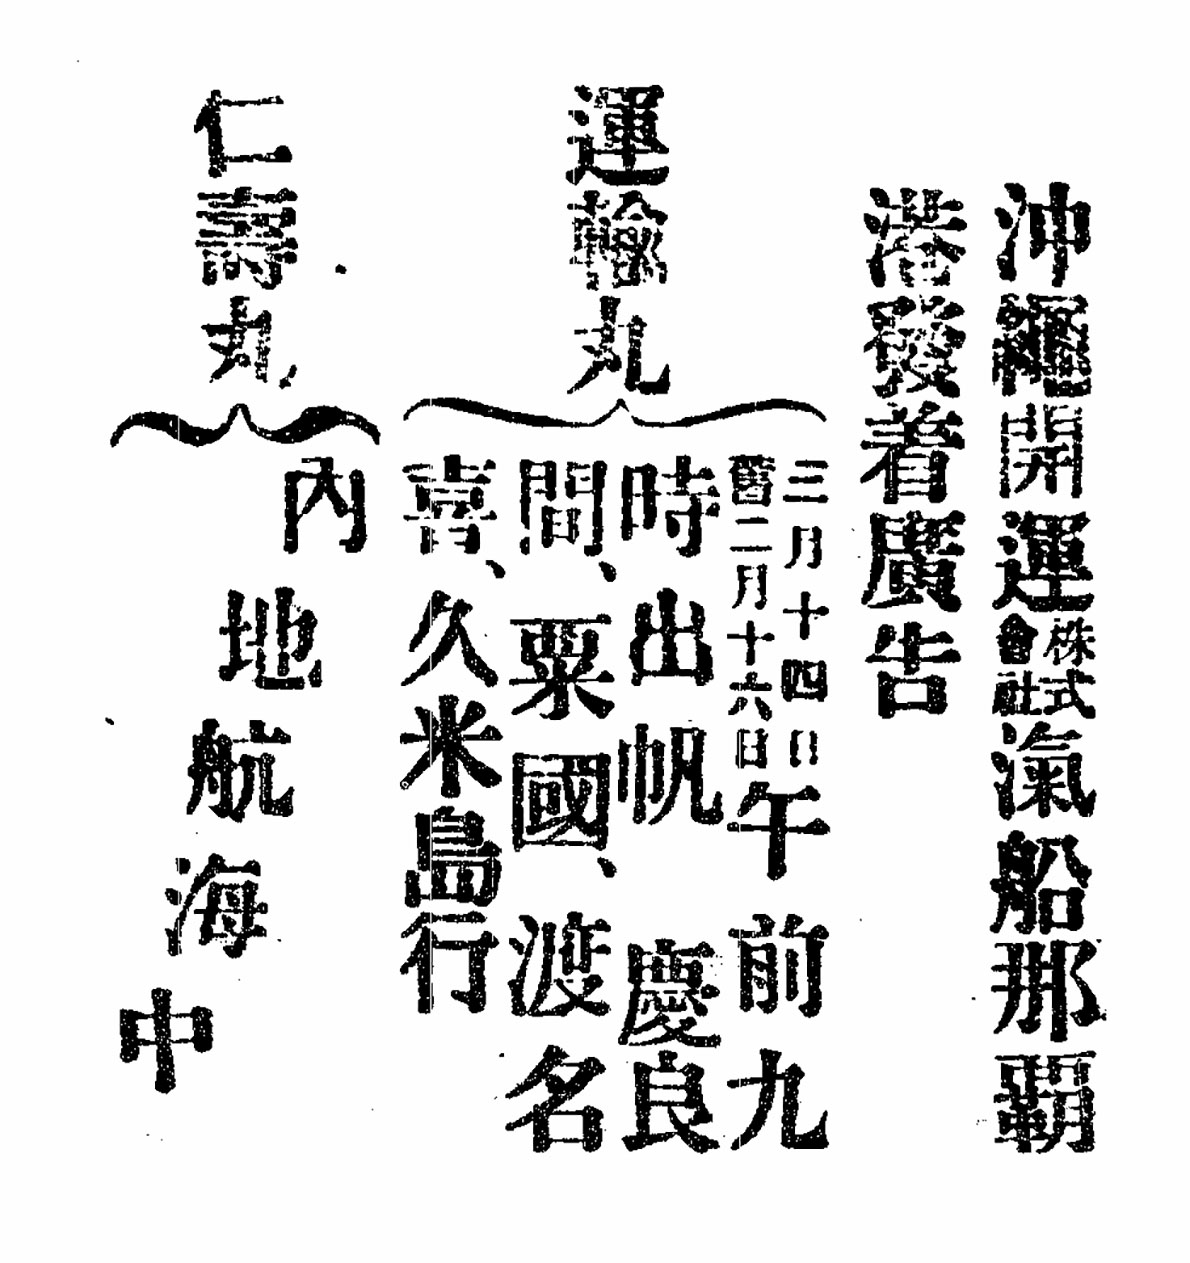 沖繩開運株式會社滊船那覇
港發着廣告
運輸丸
三月十四日
舊二月十六日
午前九
時出帆 慶良
間、粟國、渡名
喜、久米島行
仁壽丸
內地航海中